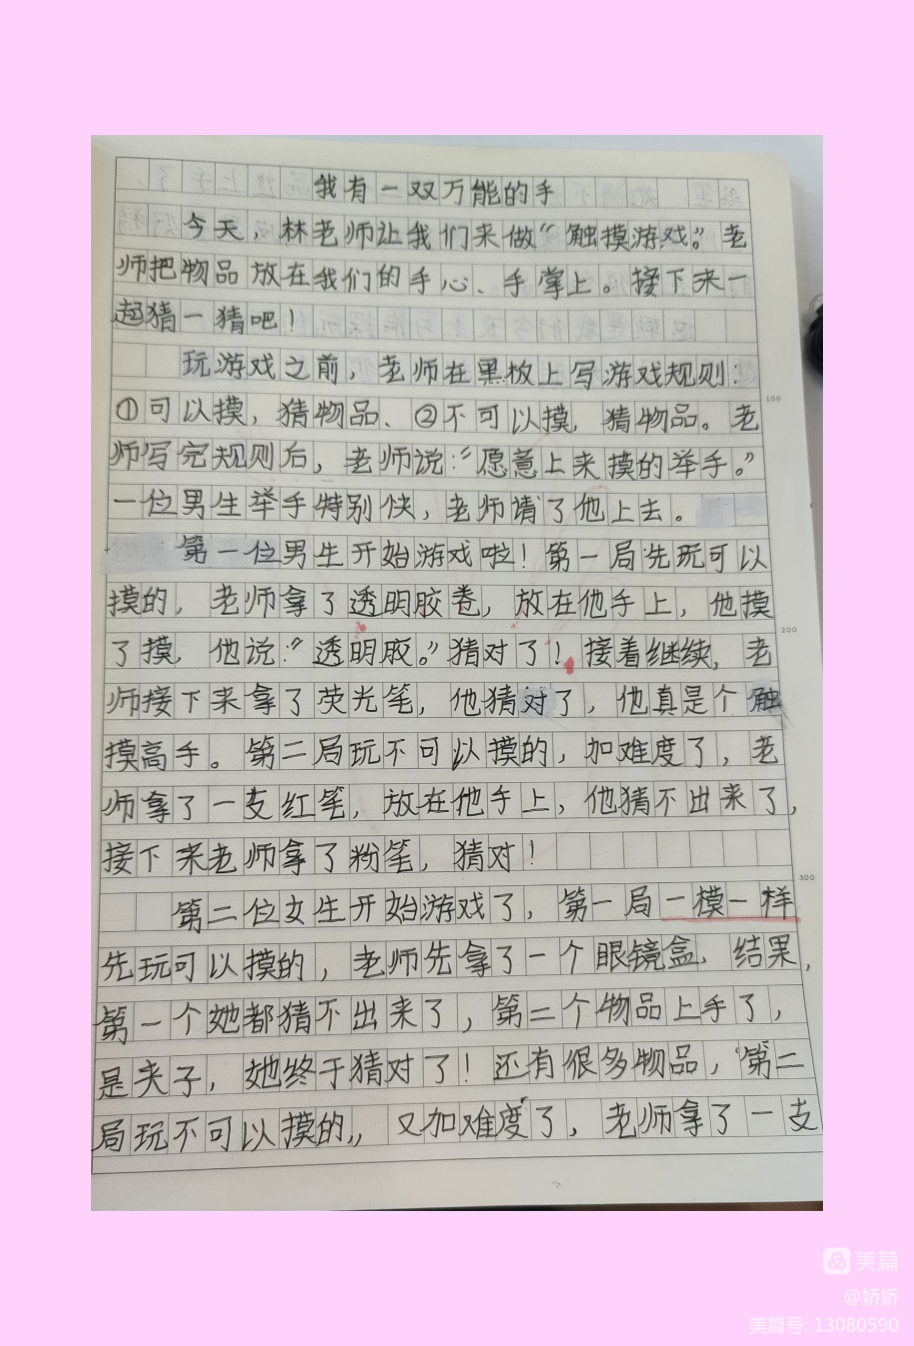 我有一双万能的手
今天，林老师让我们来做“触摸游戏。”老
师把物品放在我们的手心、手掌上。接下来一
起猜一猜吧！
玩游戏之前，老师在黑板上写游戏规则：
①可以摸，猜物品、②不可以摸，猜物品。老
师写完规则后，老师说：“愿意上来摸的举手。”
一位男生举手特别快，老师请了他上去。
第一位男生开始游戏啦！第一局先玩可以
摸的，老师拿了透明胶卷，放在他手上，他摸
了摸，他说：“透明胶。”猜对了！接着继续，老
师接下来拿了荧光笔，他猜对了，他真是个触
摸高手。第二局玩不可以摸的，加难度了，老
师拿了一支红笔，放在他手上，他猜不出来了，
接下来老师拿了粉笔，猜对！
第二位女生开始游戏了，第一局一模一样
先玩可以摸的，老师先拿了一个眼镜盒，结果，
第一个她都猜不出来了，第二个物品上手了，
是夹子，她终于猜对了！还有很多物品，第二
局玩不可以摸的，，又加难度了，老师拿了一支
100
200
300
美篇
@娇娇
美篇号: 13080590